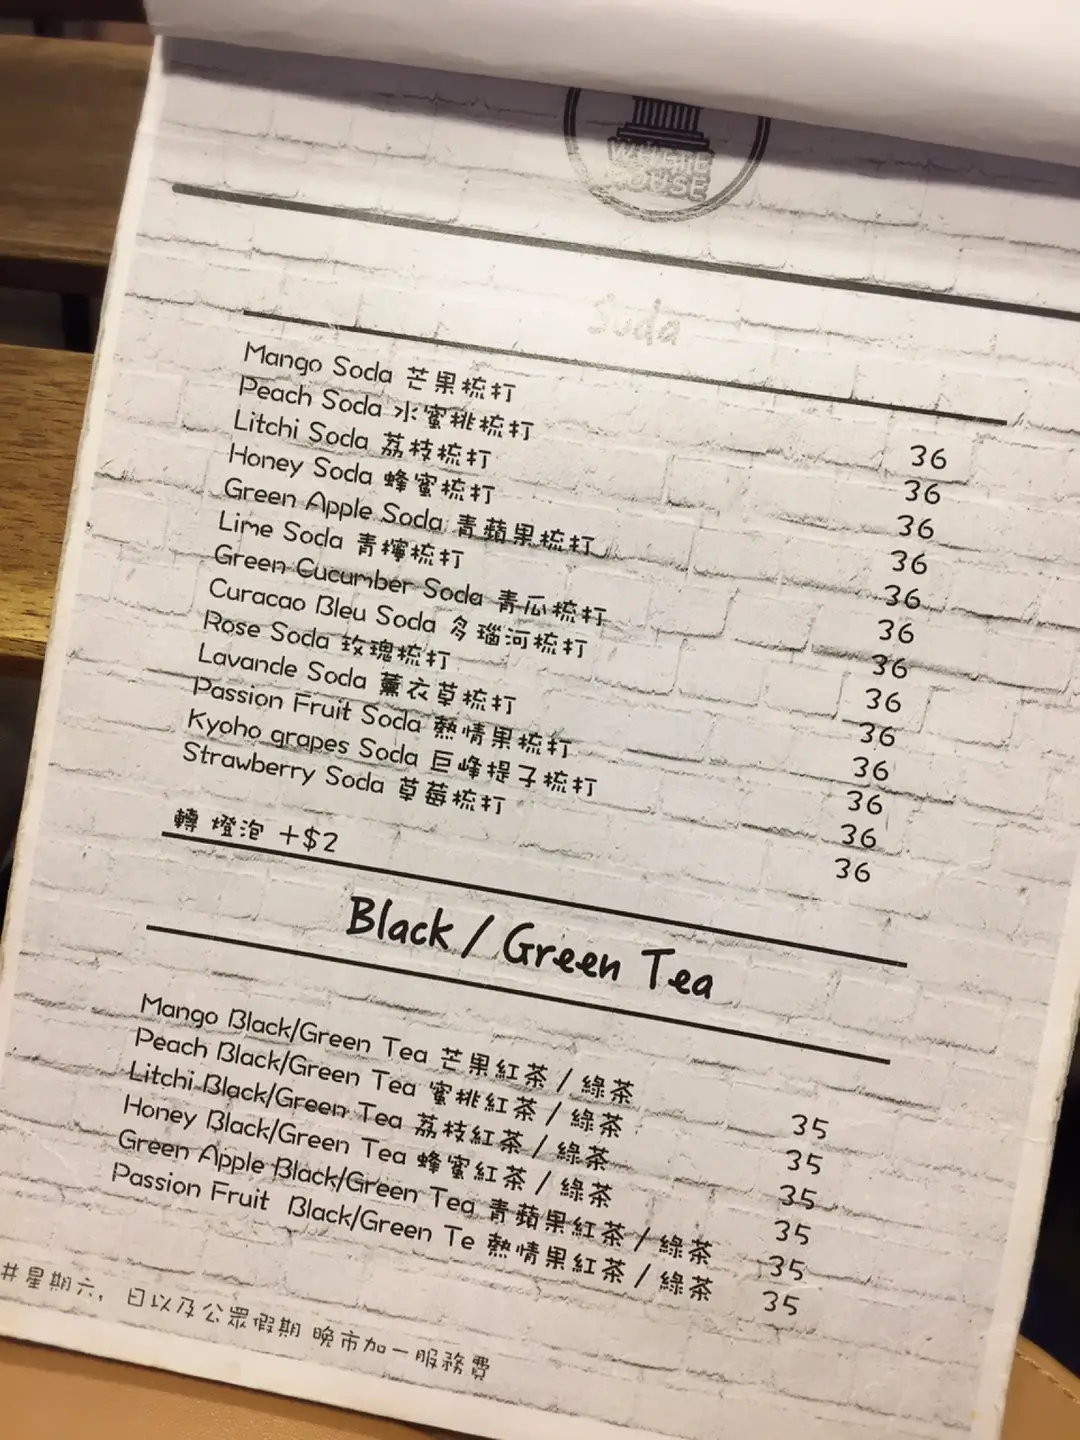 WHITE
HOUSE
Soda
Mango Soda 芒果梳打 36
Peach Soda 水蜜桃梳打 36
Litchi Soda 荔枝梳打 36
Honey Soda 蜂蜜梳打 36
Green Apple Soda 青蘋果梳打 36
Lime Soda 青檸梳打 36
Green Cucumber Soda 青瓜梳打 36
Curacao Bleu Soda 多瑙河梳打 36
Rose Soda 玫瑰梳打 36
Lavande Soda 薰衣草梳打 36
Passion Fruit Soda 熱情果梳打 36
Kyoho grapes Soda 巨峰提子梳打 36
Strawberry Soda 草莓梳打 36
轉 燈泡 +$2
Black / Green Tea
Mango Black/Green Tea 芒果紅茶 / 綠茶 35
Peach Black/Green Tea 蜜桃紅茶 / 綠茶 35
Litchi Black/Green Tea 荔枝紅茶 / 綠茶 35
Honey Black/Green Tea 蜂蜜紅茶 / 綠茶 35
Green Apple Black/Green Tea 青蘋果紅茶 / 綠茶 35
Passion Fruit Black/Green Te 熱情果紅茶 / 綠茶 35
#星期六, 日以及公眾假期 晚市加一服務費